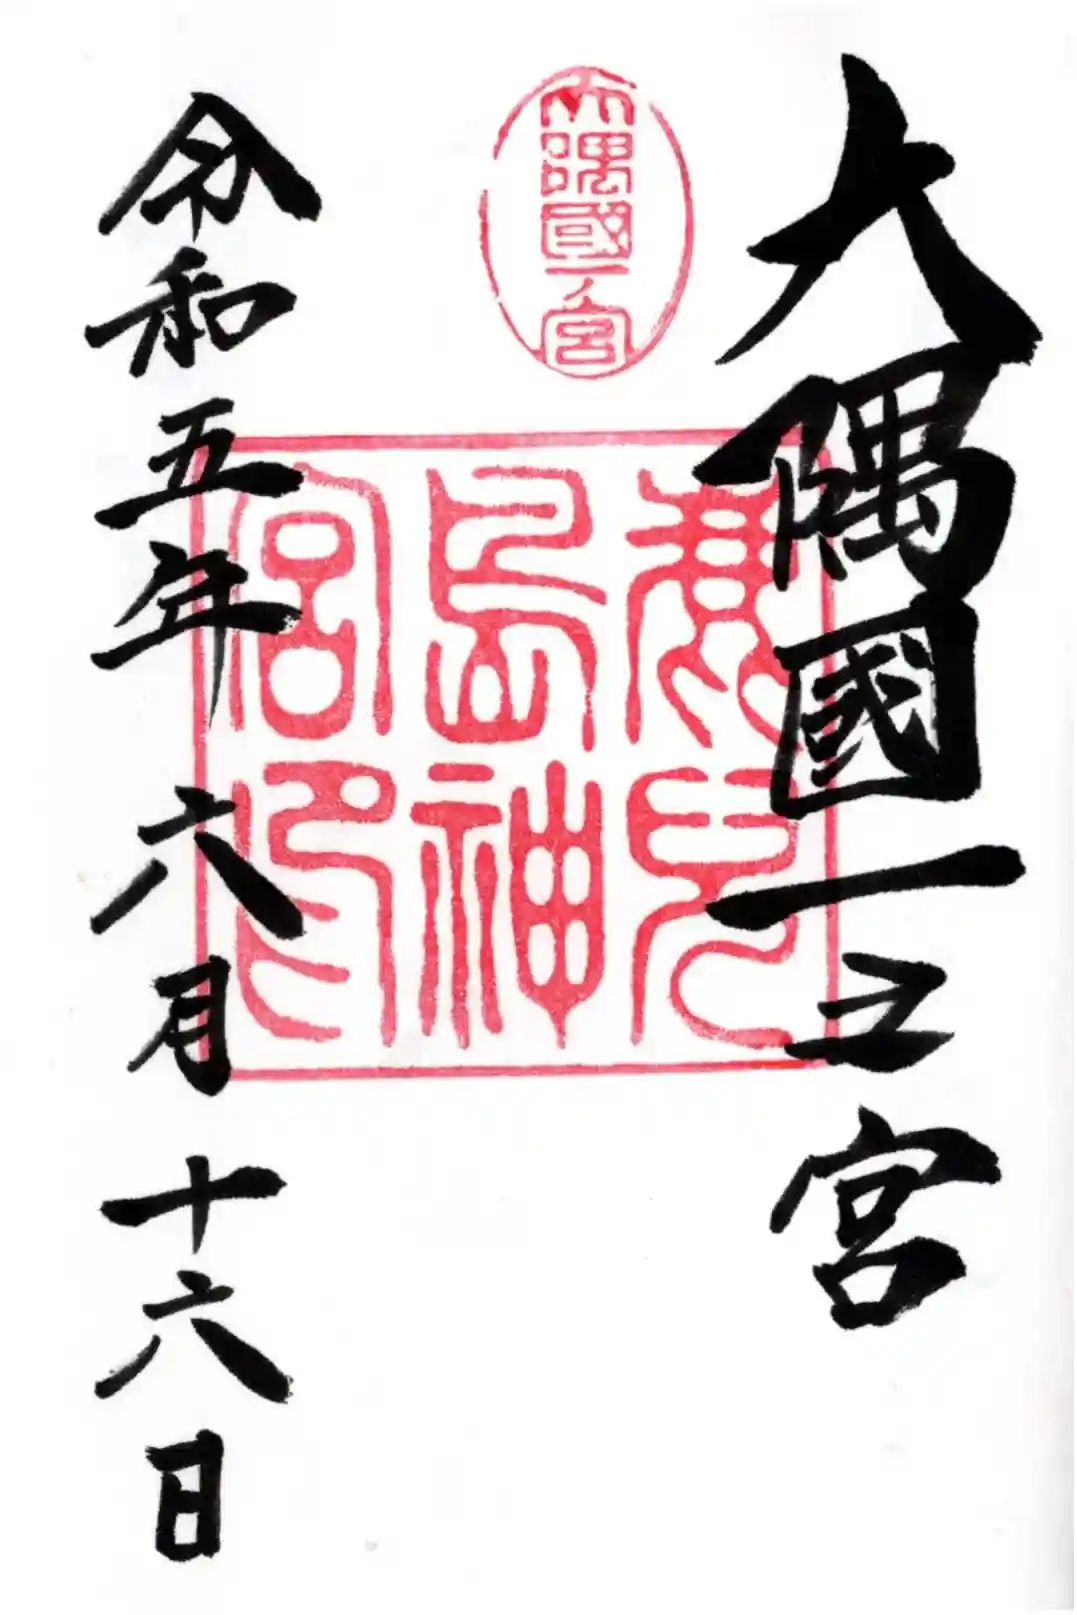 大隅國一之宮
大隅國一ノ宮
鹿兒
島神
宮印
令和五年六月十六日